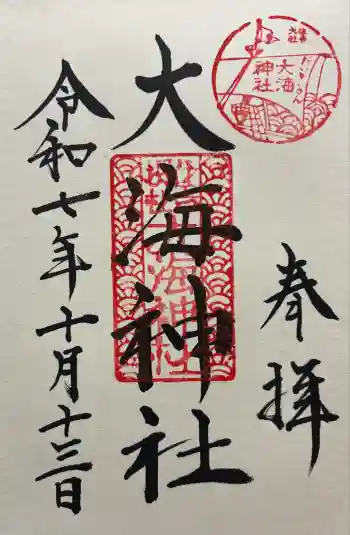 奉拝
大海神社
令和七年十月十三日
住吉
大社
たいかいさん
大海
神社